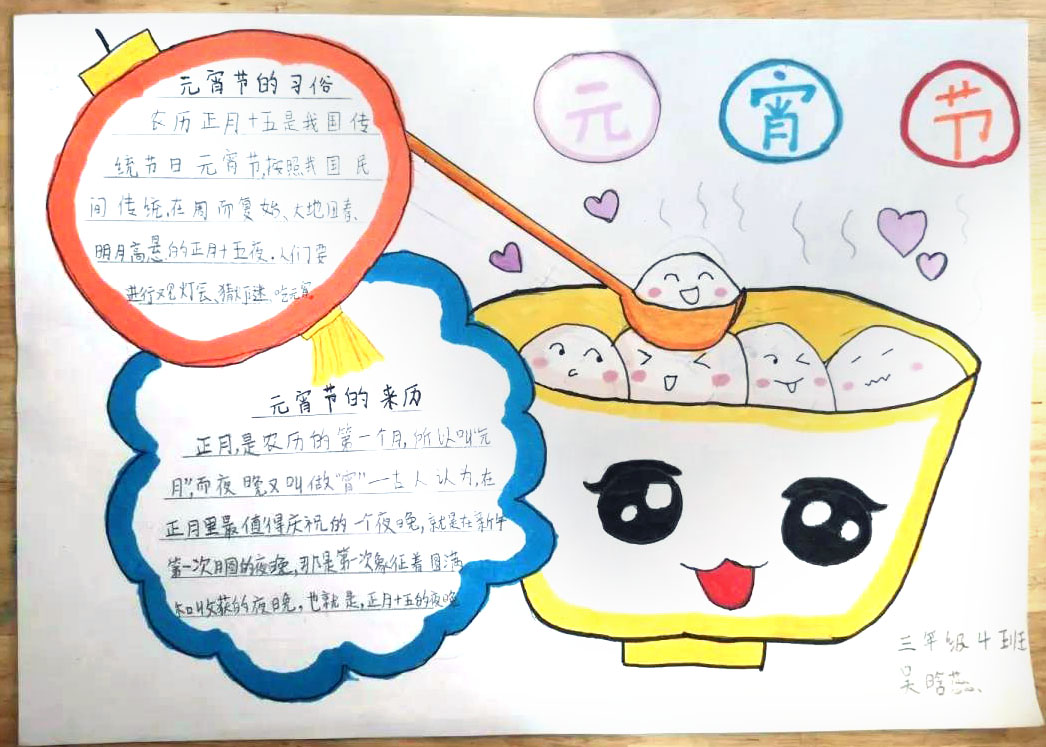 元宵节
元宵节的习俗
农历正月十五是我国传
统节日元宵节,按照我国民
间传统,在周而复始、大地回春、
明月高悬的正月十五夜.人们要
进行观灯会、猜灯谜、吃元宵。
元宵节的来历
正月,是农历的第一个月,所以叫“元
月”,而夜晚又叫做“宵”一古人认为,在
正月里最值得庆祝的一个夜晚,就是在新年
第一次月圆的夜晚,那是第一次象征着圆满
和收获的夜晚,也就是,正月十五的夜晚
三年级4班
吴晗蕊